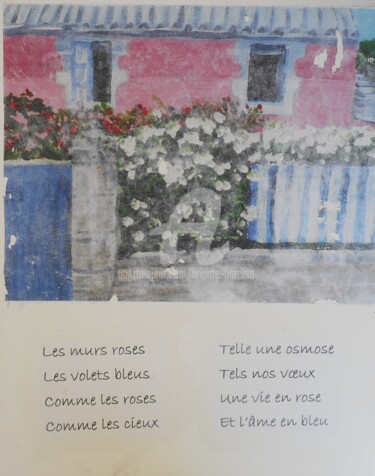 Les murs roses
Les volets bleus
Comme les roses
Comme les cieux
Telle une osmose
Tels nos vœux
Une vie en rose
Et l'âme en bleu